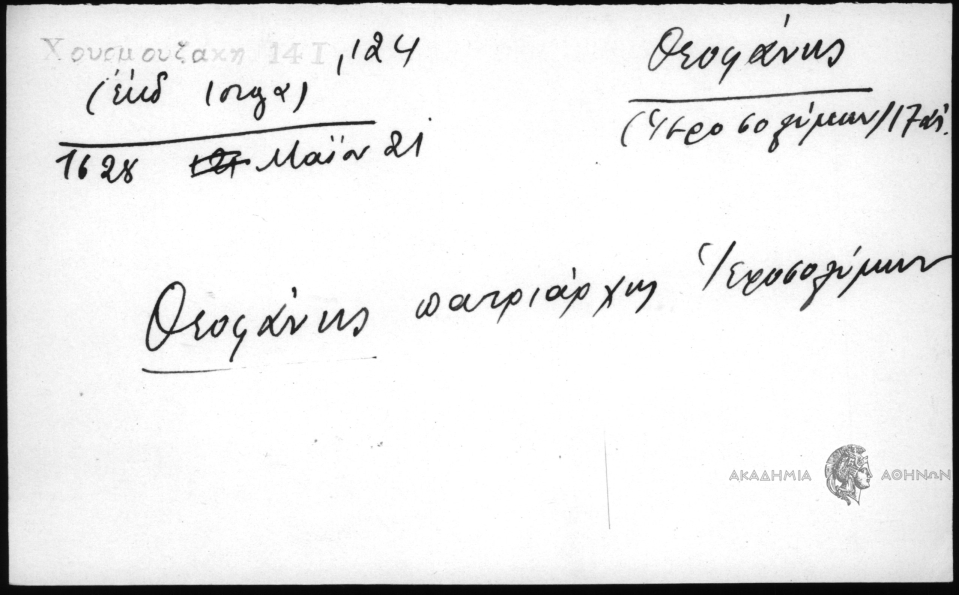 Χουρμουζάκη 14Ι, 124
(ἐκδ Ιοργα)
1628 Μαΐου 21
Θεοφάνης
(Ἱεροσολύμων) 17 αἰ.
Θεοφάνης πατριάρχης Ἱεροσολύμων
ΑΚΑΔΗΜΙΑ ΑΘΗΝΩΝ